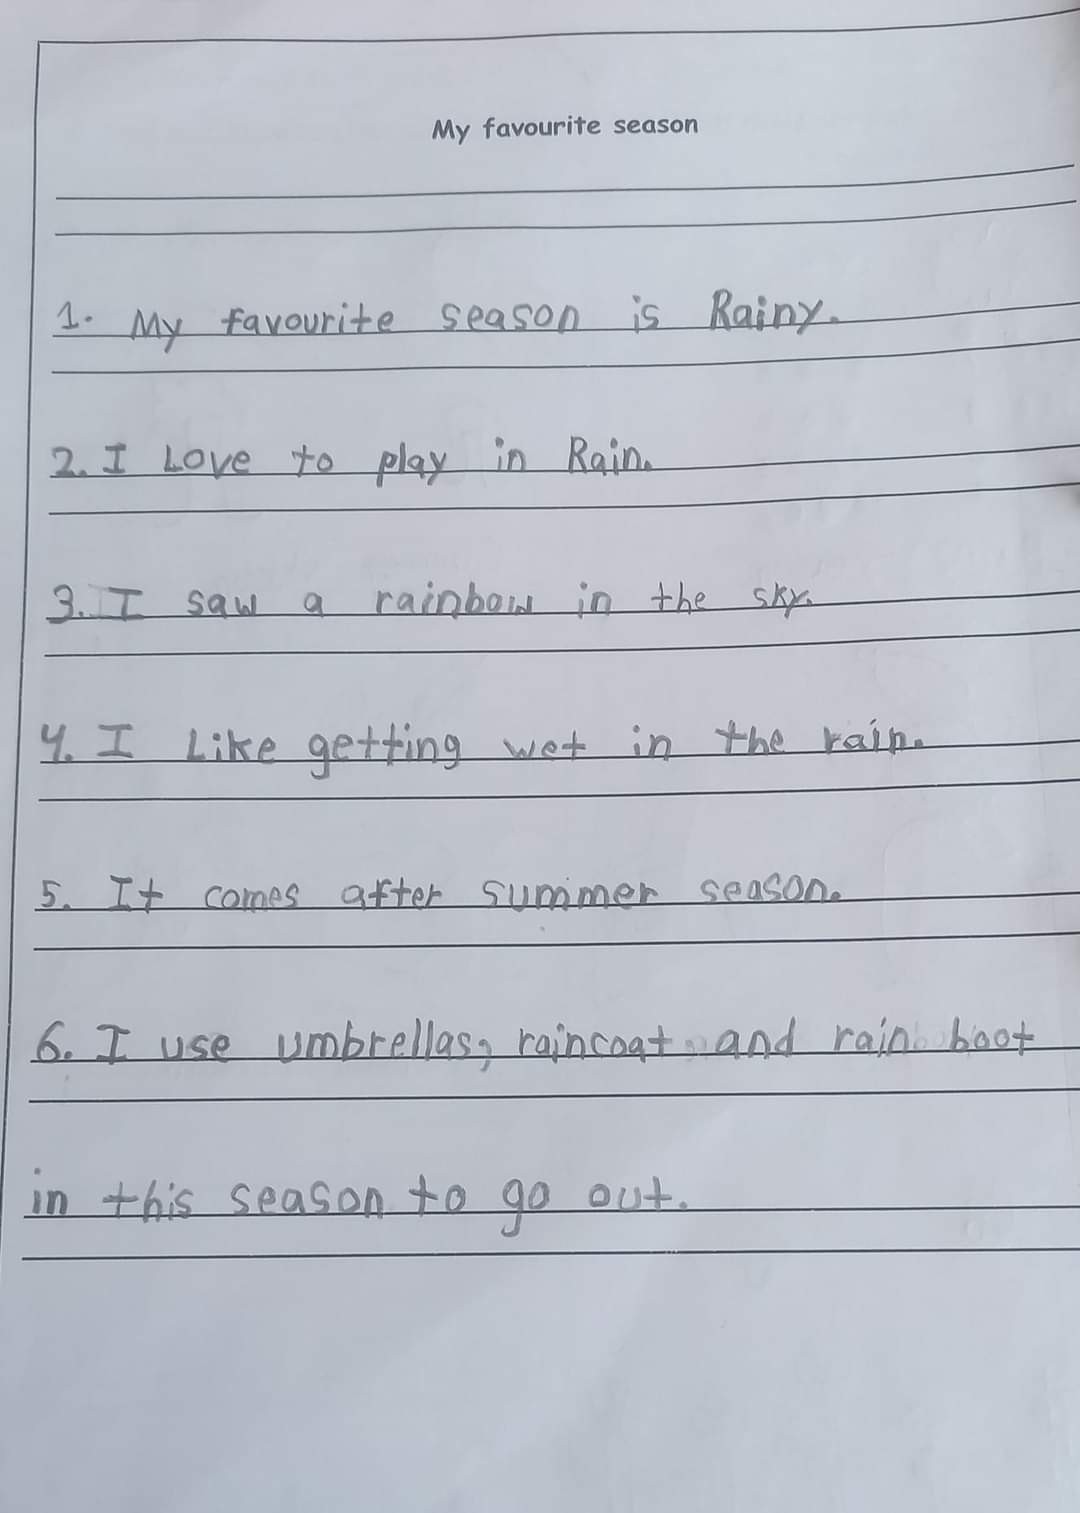 My favourite season
1. My favourite season is Rainy.
2. I Love to play in Rain.
3. I saw a rainbow in the sky.
4. I Like getting wet in the rain.
5. It comes after summer season.
6. I use umbrellas, raincoat and rain boot
in this season to go out.